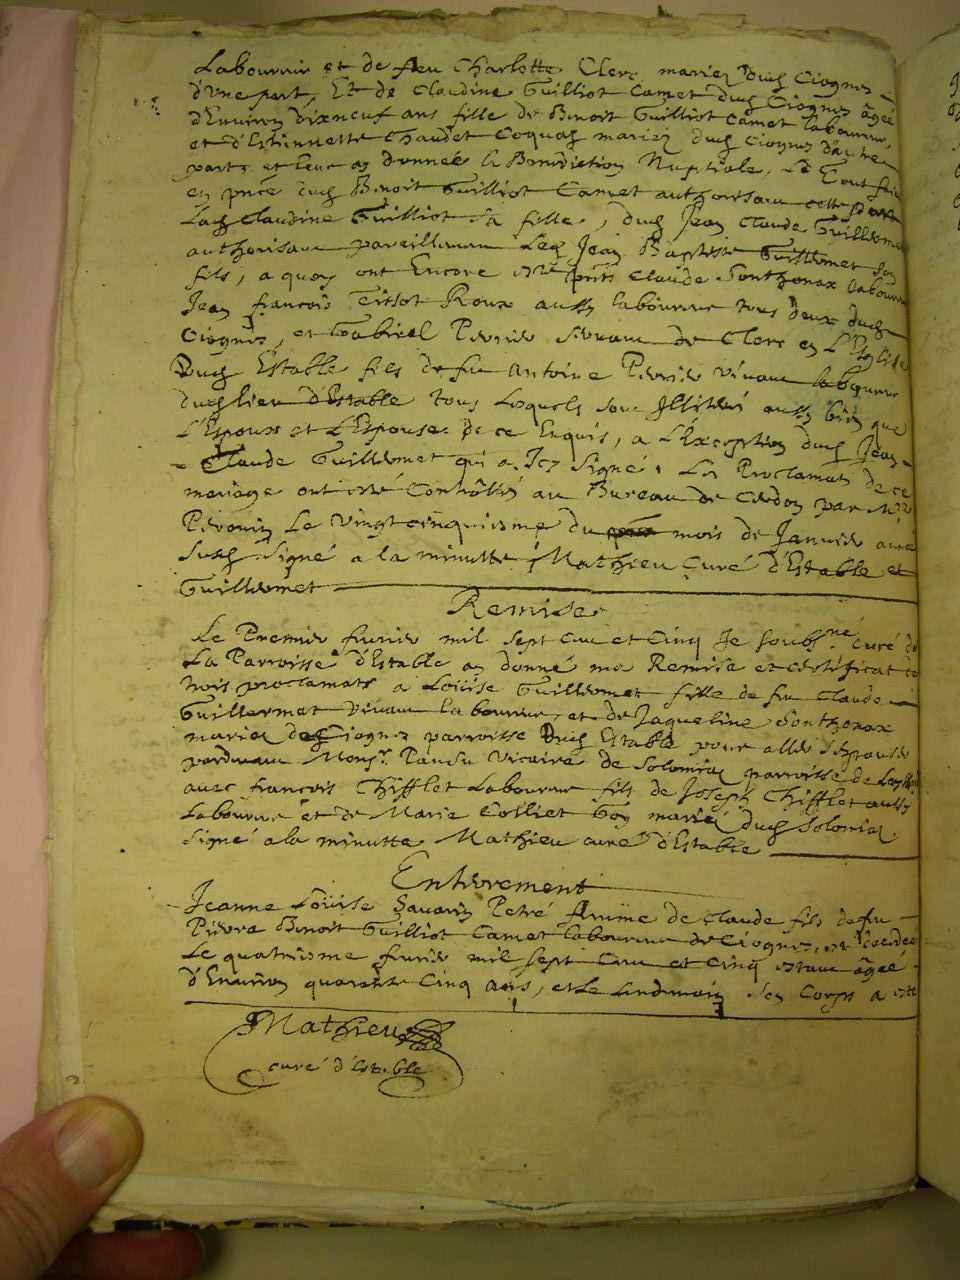 Laboureur et de feu Charlotte Clerc mariez dud Ciognes
d'Une part, Et de Claudine Guilliot Camet dud Ciognes âgée
d'Environ Dixneuf ans fille de Benoit Guilliot Camet laboureur,
et d'Estiennette Chaudet Coquas mariez dud Ciognes d'autre
part, et leur ay donnée la Benediction Nuptiale, Le Tout fait
en pnce dud Benoit Guilliot Camet authorisant cette part
Lad Claudine Guilliot sa fille, dud Jean Claude Guillermet
authorisant pareillement Led Jean Baptiste Guillermet son
fils, a quoy ont Encore esté pnts Claude Sonthonax laboureur
Jean françois Tissot Roux aussy laboureur tous deux dud
Ciognes, et Gabriel Perrier servant de Clerc en L'Eglise
Dud Estable fils de fu Antoine Perrier vivant laboureur
dud lieu d'Estable tous Lesquels sont Illiterés aussy bien que
L'Espoux et L'Espouse de ce Enquis, a L'Exception dud Jean
Claude Guillermet qui a Icy signé. Les Proclamats de ce
mariage ont esté Contrôllés au Bureau de Cerdon par Mre
Perouin Le Vingtcinquiesme du mois de Janvier année
Susd Signé a la minutte Mathieu Curé d'Estable et
Guillermet
Remise
Le Premier fevrier mil sept cent et Cinq Je soubsné curé de
La Parroisse d'Estable ay donné ma Remise et certificat de
trois proclamats a Loüise Guillermet fille de fu Claude
Guillermet vivant laboureur, et de Jaqueline Sonthonax
mariez de Ciognes parroisse Dud Estable pour aller s'Epouser
pardevant Monsr. Pansu Vicaire de Solomiaz parroisse de
avec françois Chifflet Laboureur fils de Joseph Chifflet aussy
Laboureur et de Marie Colliet Goy mariez dud Solomiaz.
Signé a la minutte Mathieu curé d'Estable
Enterrement
Jeanne Loüise Savarin Petré femme de Claude fils de fu
Pierre Benoit Guilliot Camet laboureur de Ciognes, est decedée
Le quatriesme fevrier mil sept cent et Cinq estant âgée
d'Environ quarante Cinq ans, et Le Lendemain son Corps a esté
Mathieu
curé d'Estable